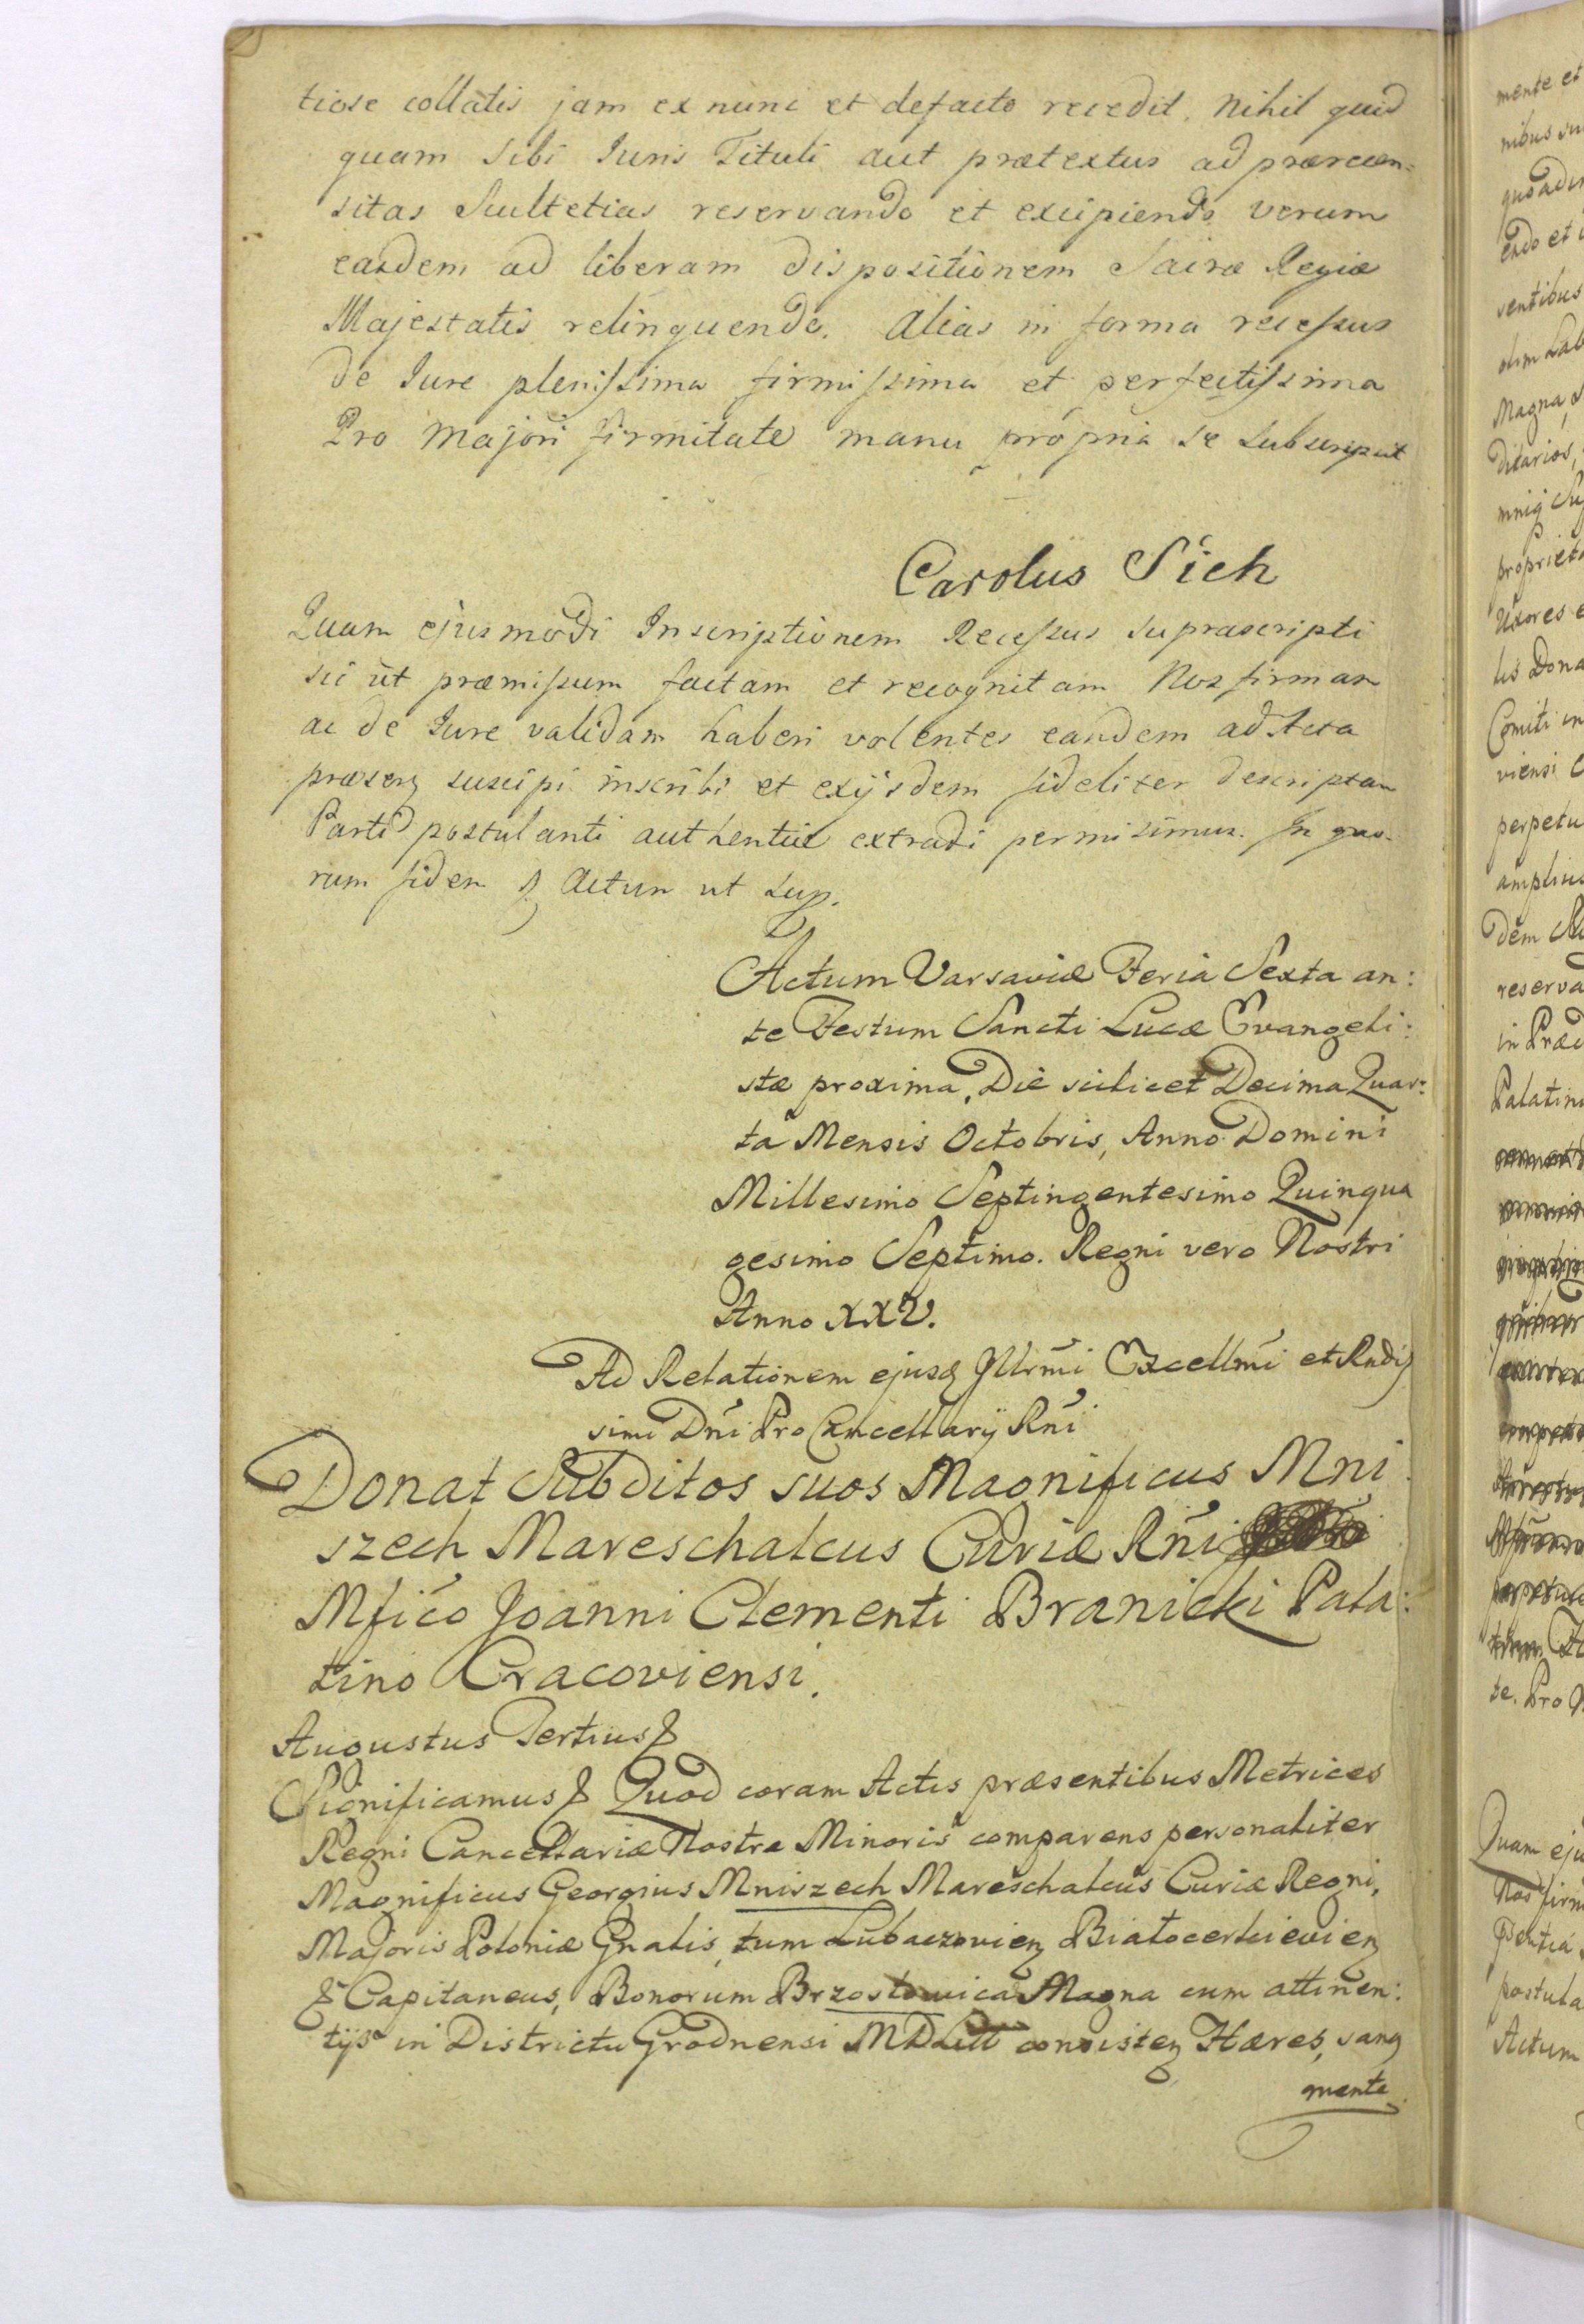 tiose collatis jam ex nunc et defacto recedit. Nihil quid
quam sibi Iuris Tituli aut prætextus ad præreccen=
sitas Scultetias reservando et excipiendo verum
easdem ad liberam dispositionem Sacræ Regiæ
Majestatis relinquendo. Alias in forma recessus
de Iure plenissima firmissima et perfectissima
Pro majori firmitate manu propria se subscripsit
Carolus Sich
Quam ejusmodi Inscriptionem Recessus suprascripti
sic ut præmissum factam et recognitam Nos firmam
ac de Iure validam haberi volentes eandem ad Acta
præsenz suscipi inscribi et exijsdem fideliter descriptam
Parti postulanti authentice extradi permisimus. In quo-
rum fidem & Actum ut sup.
Actum Varsaviæ Feria Sexta an:
te Festum Sancti Lucæ Evangeli:
stæ proxima, Die scilicet Decima Quar:
ta Mensis Octobris, Anno Domini
Millesimo Septingentesimo Quinqua
gesimo Septimo. Regni vero Nostri
Anno XXV.
Ad Relationem ejusd Illrmi Excellmi et Rndis
simi Dni Pro Cancellarij Rni
Donat Subditos suos Magnificus Mni
szech Mareschalcus Curiæ Rni
Mfico Joanni Clementi Branicki Pala:
tino Cracoviensi.
Augustus Tertius &
Significamus & Quod coram Actis præsentibus Metrices
Regni Cancellariæ Nostræ Minoris comparens personaliter
Magnificus Georgius Mniszech Mareschalcus Curiæ Regni,
Majoris Poloniæ Gnalis, tum Lubaczovienz Białocerkievienz
& Capitaneus, Bonorum Brzostowica Magna cum attinen:
tijs in Districtu Grodnensi MDLitt consistenz Hæres, sanz
mente
mente et
nibus su
quoad
endo et
ventibus
olim Lab
Magna,
ditarios,
proprieta
Uxores e
lis Dona
Comiti in
viensi C
perpetu
amplius
dem
reserva
in Præd
Palatin
te. Pro
Quam eju
Nos firm
postula
Actum